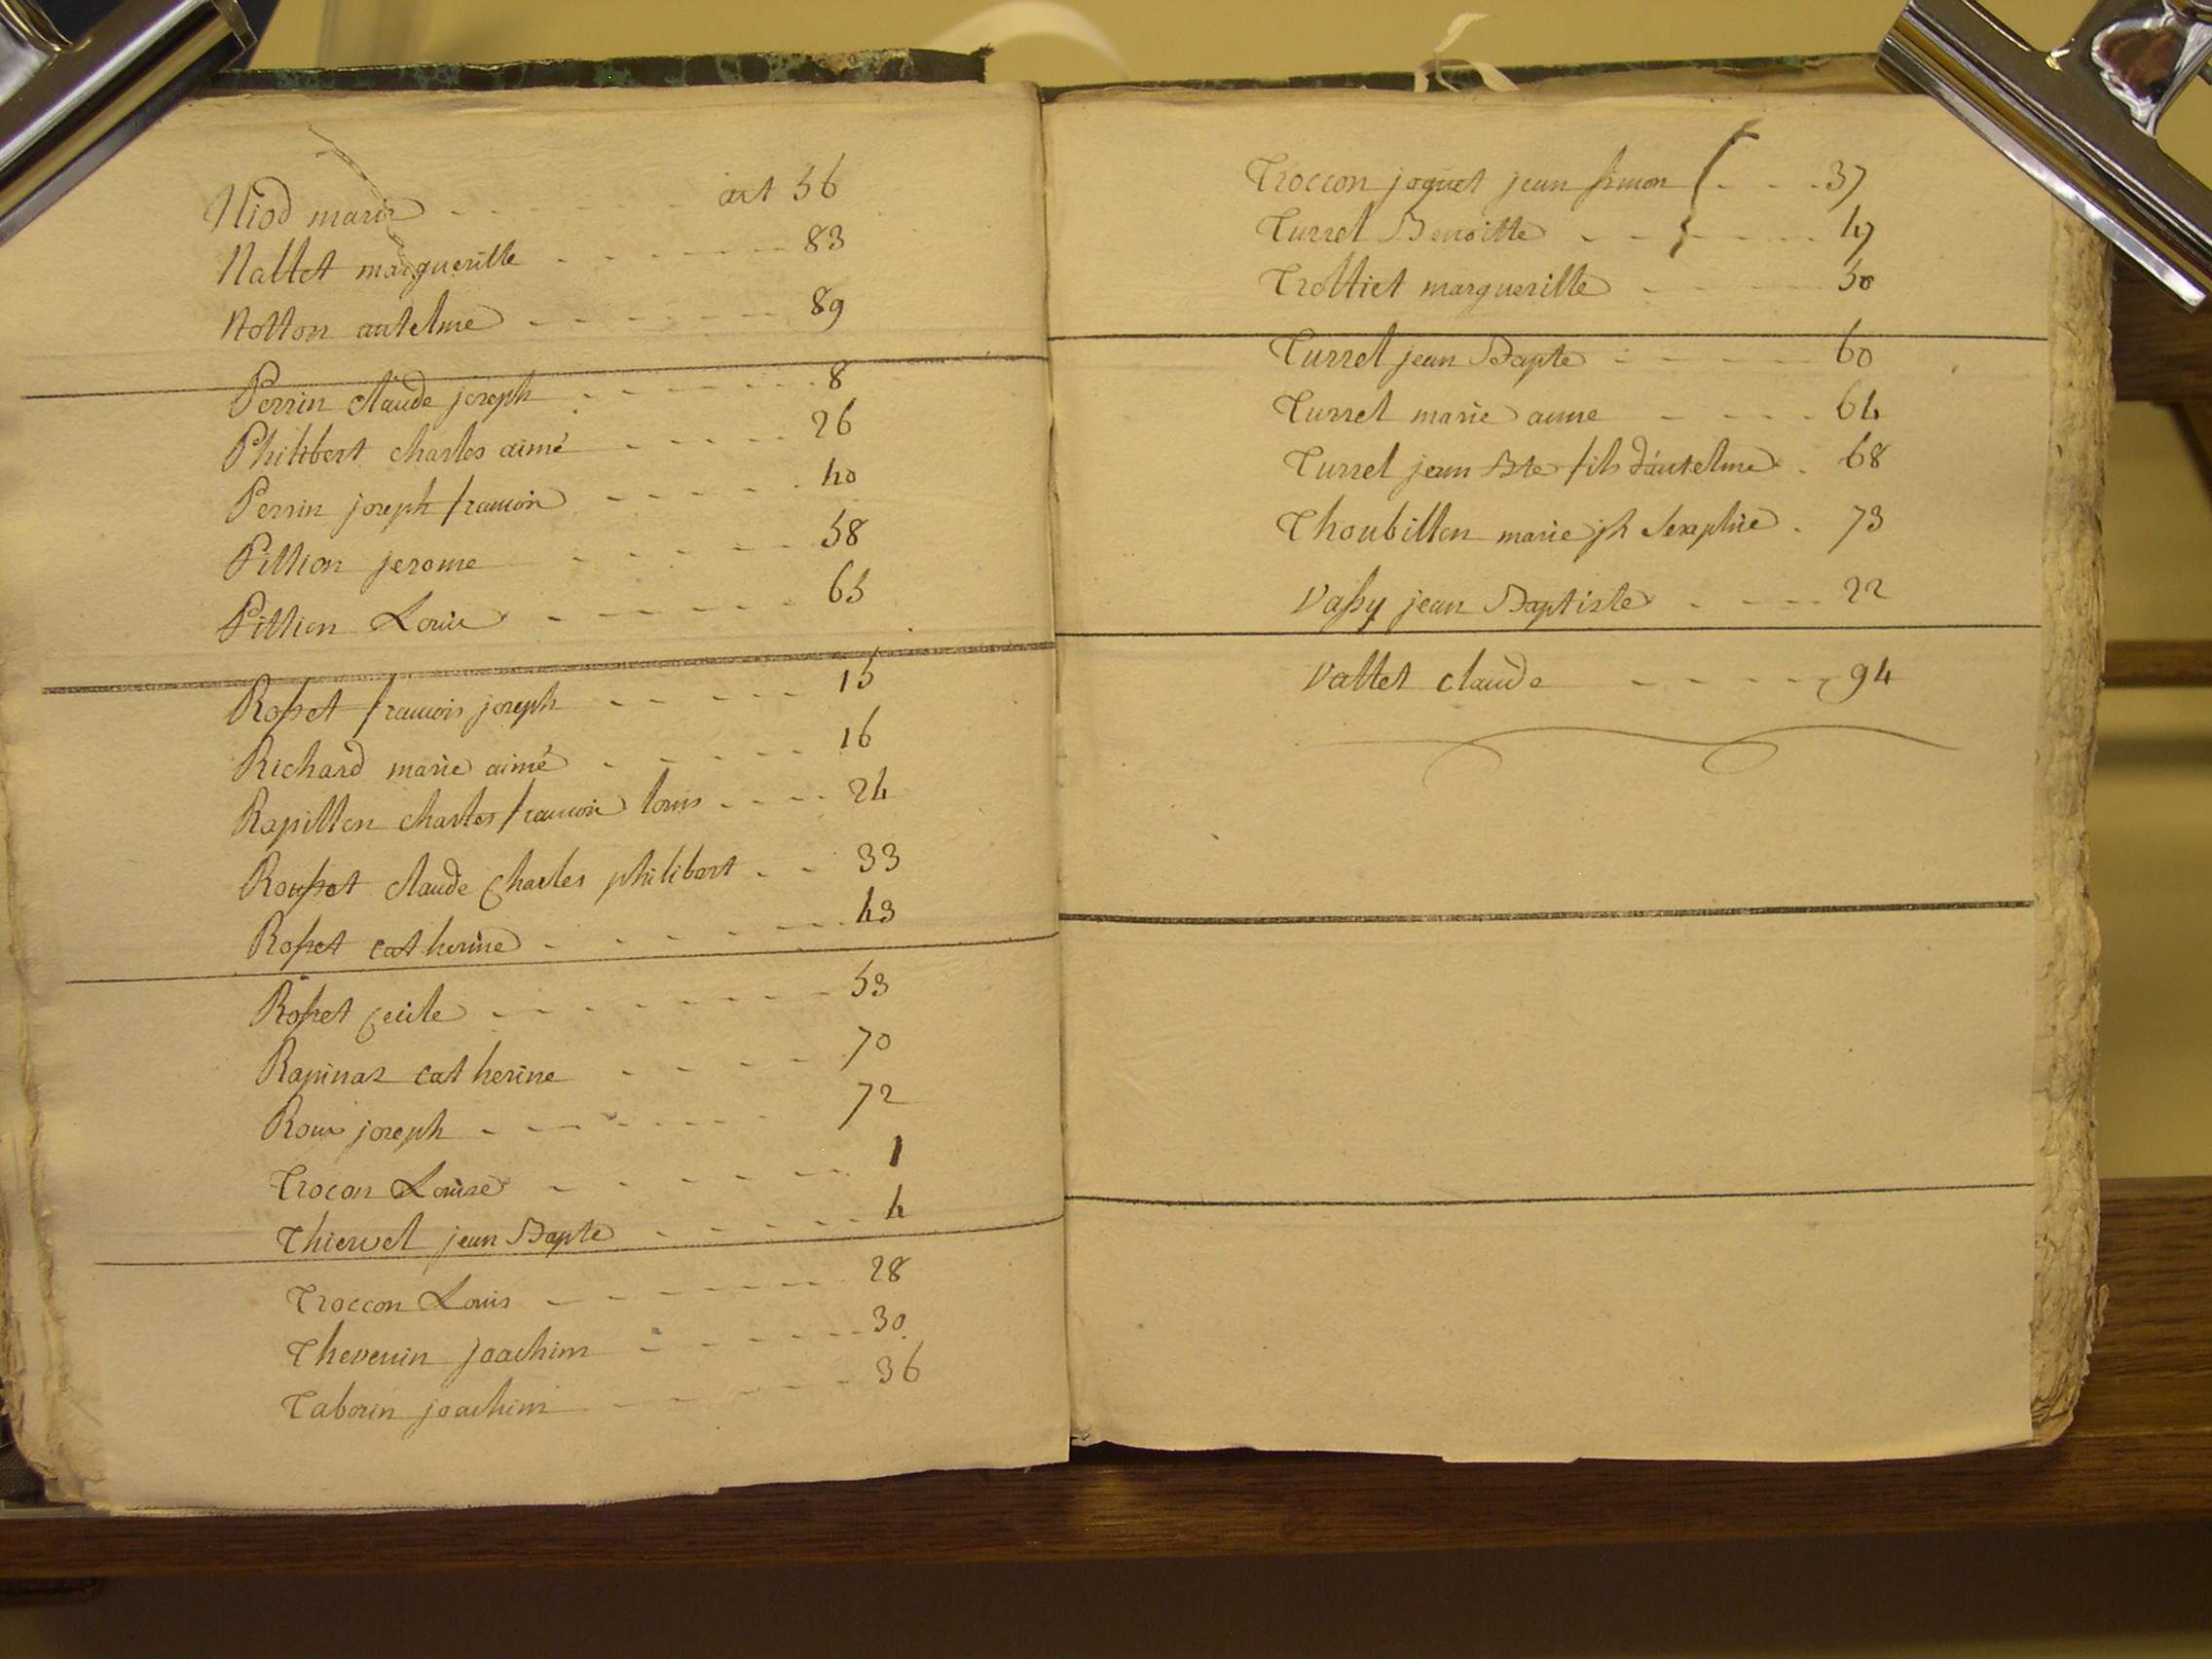 Niod marie art 56
Nallet marguerille 83
Notton antelme 89
Perrin claude joseph 8
Philibert charles aimé 26
Perrin joseph francois 40
Pillion jerome 58
Pillion Louis 65
Rosset francois joseph 15
Richard marie aimé 16
Rapillon charles francois louis 24
Rousset claude Charles philibert 33
Rosset catherine 43
Rosset Cecile 53
Rapinas catherine 70
Roux joseph 72
Trocon Louise 1
Thiervet jean Bapte 4
Troccon Louis 28
Thevenin joachim 30
Taborin joachim 36
Troccon joquet jean simon 37
Turrel Benoitte 47
Trolliet marguerille 50
Turrel jean Bapte 60
Turrel marie anne 64
Turrel jean Bte fils d'antelme 68
Thoubillon marie jh Seraphie 73
Vassy jean Baptiste 22
Vallet claude 94